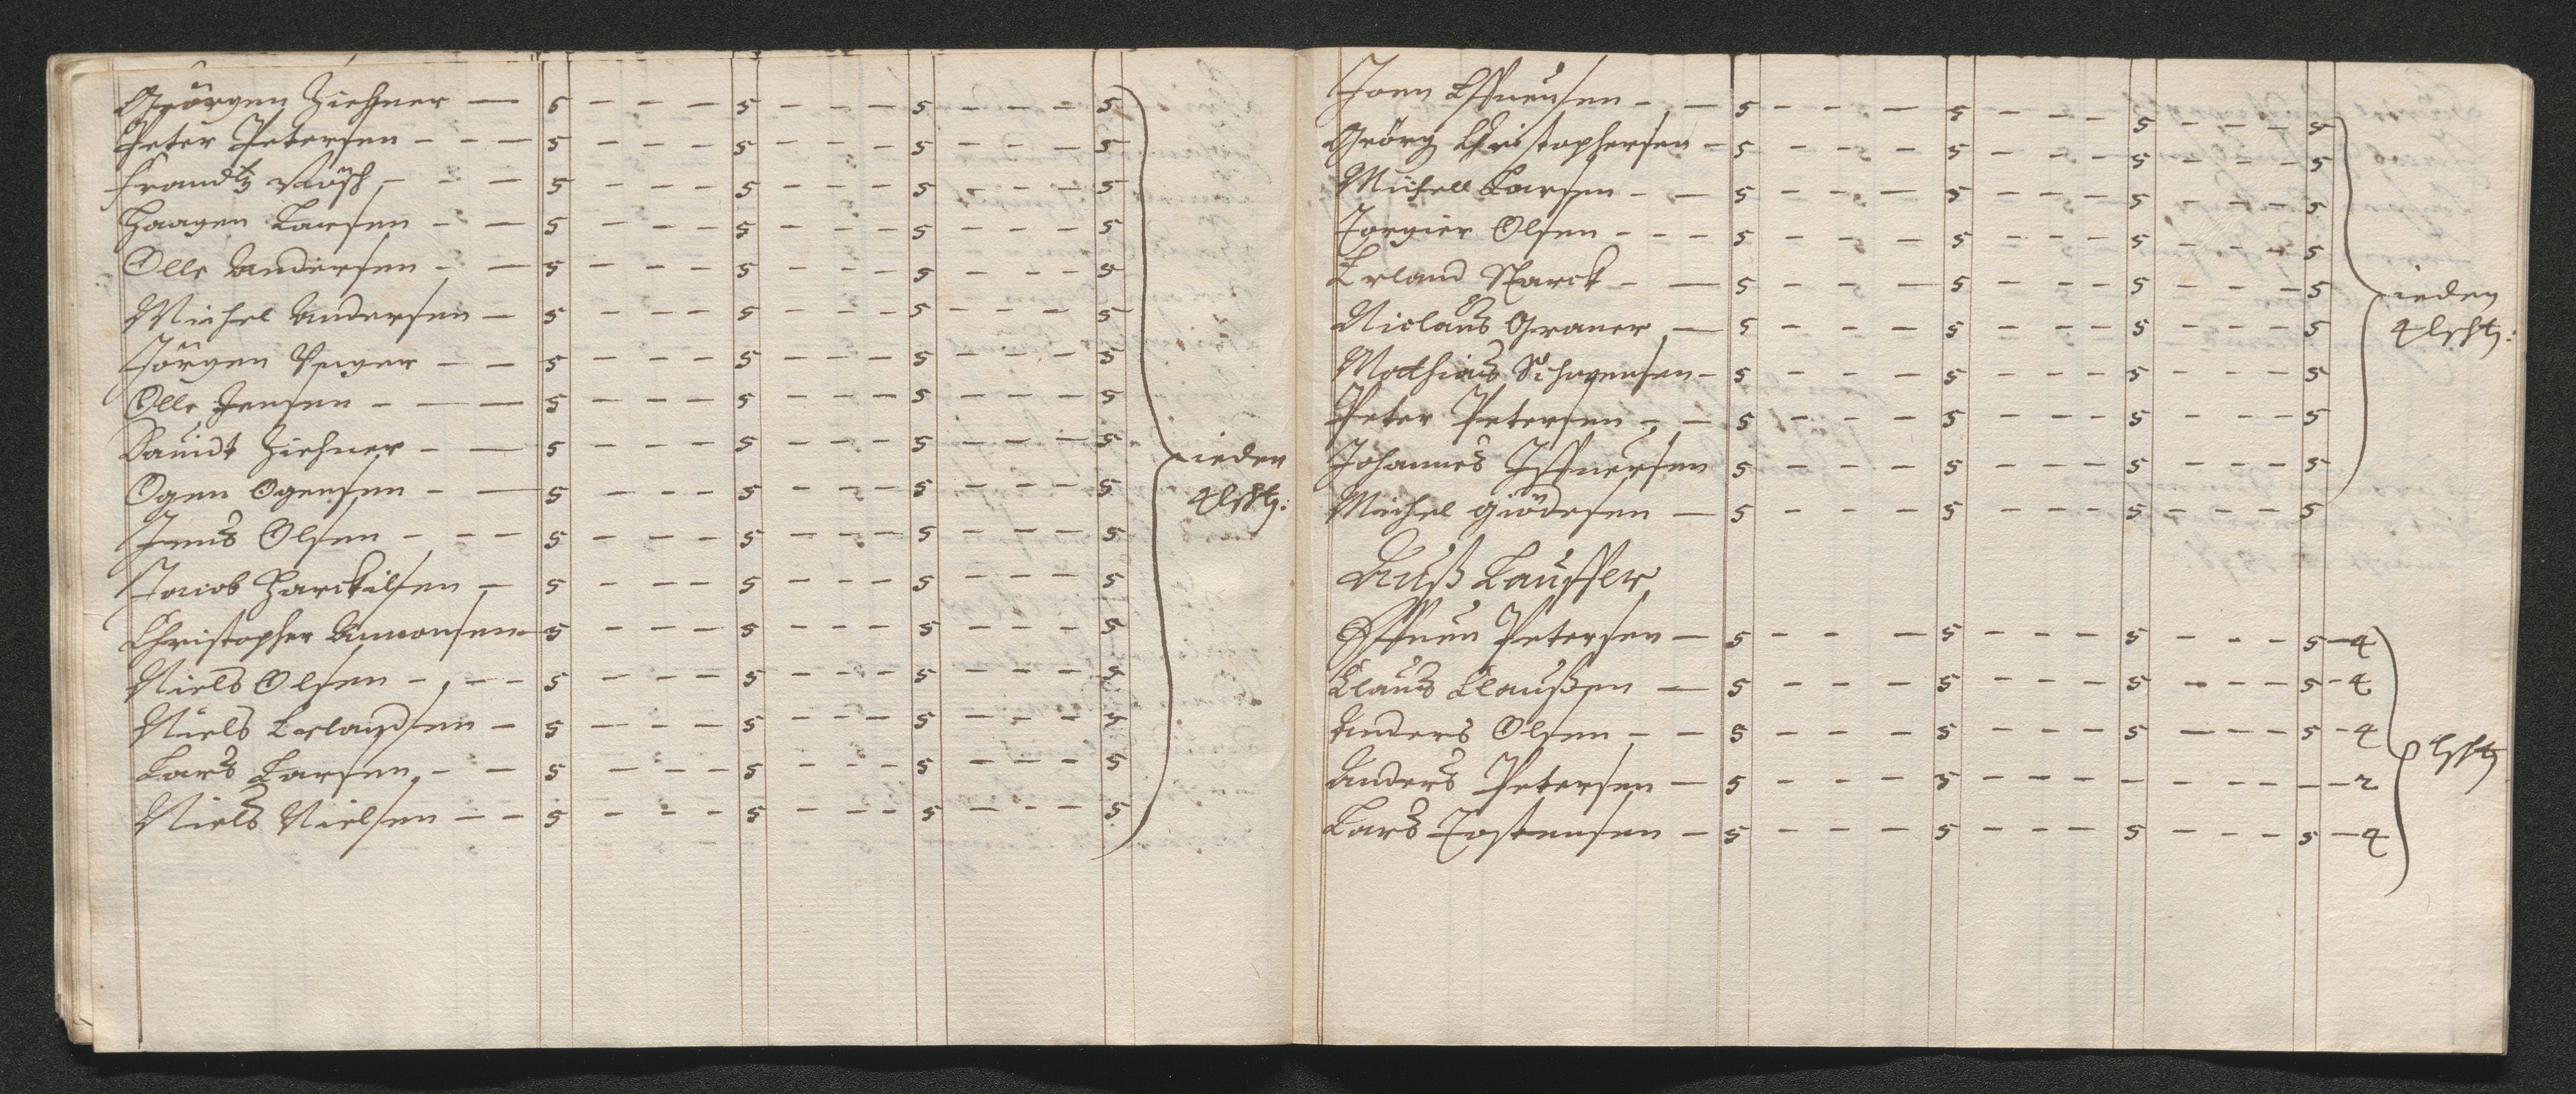 Geörgen Ziehner — 5 - - - - 5 - - - - 5 - - - - 5
Peter Petersen - - - 5 - - - - 5 - - - - 5 - - - - 5
Frandtz - - - 5 - - - - 5 - - - - 5 - - - - 5
Haagen Larsen - - 5 - - - - 5 - - - - 5 - - - - 5
Olle Andersen - - 5 - - - - 5 - - - - 5 - - - - 5
Michel Andersen - 5 - - - - 5 - - - - 5 - - - - 5
Jörgen Unger - - 5 - - - - 5 - - - - 5 - - - - 5
Olle Jensen - - - 5 - - - - 5 - - - - 5 - - - - 5
Dauidt Ziehner - - 5 - - - - 5 - - - - 5 - - - - 5
ieden
Ogen Ogensen - - 5 - - - - 5 - - - - 5 - - - - 5
4 lschtz:
Jens Olsen - - - 5 - - - - 5 - - - - 5 - - - - 5
Jacob Harckilsen - 5 - - - - 5 - - - - 5 - - - - 5
Christopher Amonsen 5 - - - - 5 - - - - 5 - - - - 5
Niels Olsen - - - 5 - - - - 5 - - - - 5 - - - - 5
Niels Erlandsen - 5 - - - - 5 - - - - 5 - - - - 5
Lars Larsen - - 5 - - - - 5 - - - - 5 - - - - 5
Niels Nielsen - - 5 - - - - 5 - - - - 5 - - - - 5
Joen Effuensen - - 5 - - - - 5 - - - - 5 - - - - 5
Geörg Christophersen - 5 - - - - 5 - - - - 5 - - - - 5
Michell Larsen - - 5 - - - - 5 - - - - 5 - - - - 5
Torgier Olsen - - - 5 - - - - 5 - - - - 5 - - - - 5
Erland Starck - - 5 - - - - 5 - - - - 5 - - - - 5
ieden
Niclaus Graner - 5 - - - - 5 - - - - 5 - - - - 5
4 lschtz:
Matthias - 5 - - - - 5 - - - - 5 - - - - 5
Peter Petersen - - 5 - - - - 5 - - - - 5 - - - - 5
Johannes Iffuersen 5 - - - - 5 - - - - 5 - - - - 5
Michel giödesen - 5 - - - - 5 - - - - 5 - - - - 5
Auß Lauffer
Effuen Petersen - 5 - - - - 5 - - - - 5 - - - - 5 - 4
Claus Claußen - 5 - - - - 5 - - - - 5 - - - - 5 - 4
Anders Olsen - - 5 - - - - 5 - - - - 5 - - - - 5 - 4
lschtz
Anders Petersen - 5 - - - - 5 - - - - - - - - - - 2
Lars Tostensen - 5 - - - - 5 - - - - 5 - - - - 5 - 4